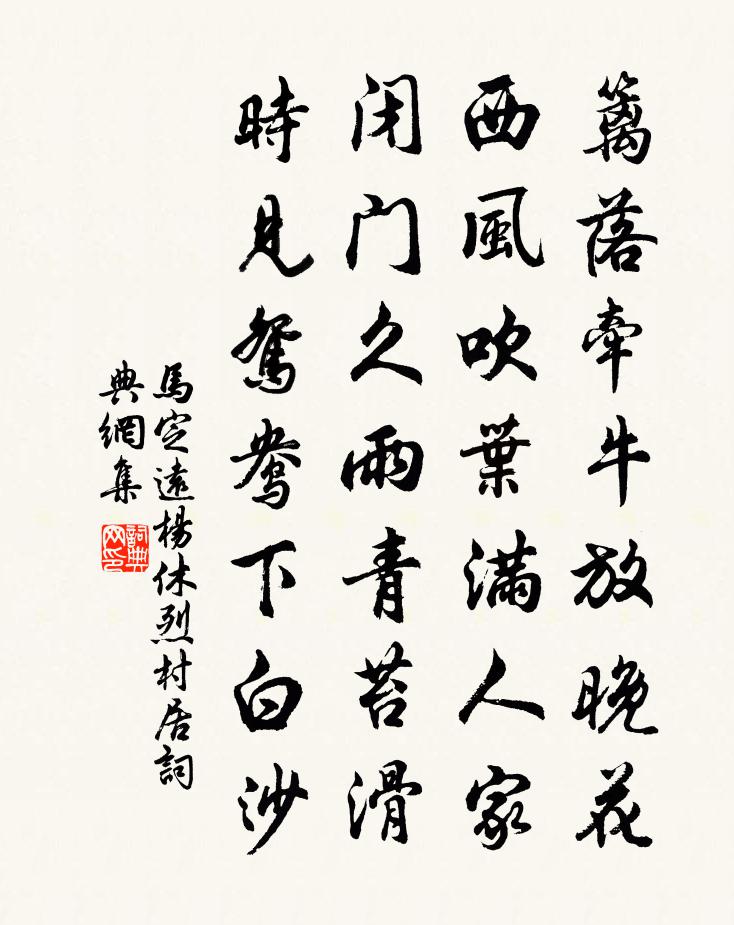 籬落牽牛放晚花
西風吹葉滿人家
閉門久雨青苔滑
時見鴛鴦下白沙
馬定遠楊休烈村居詞
典網集
詞典网印